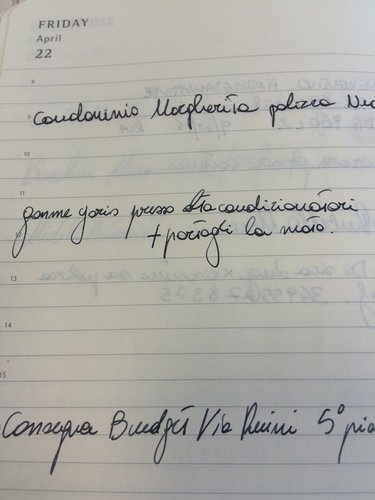 FRIDAY
April
22
8
9 Condominio Margherita polizza Nuo
10
11
gomme yaris presso condizionatori
+ portagli la moto.
13
14
15
Consegna Budget Via Ruini 5° pia